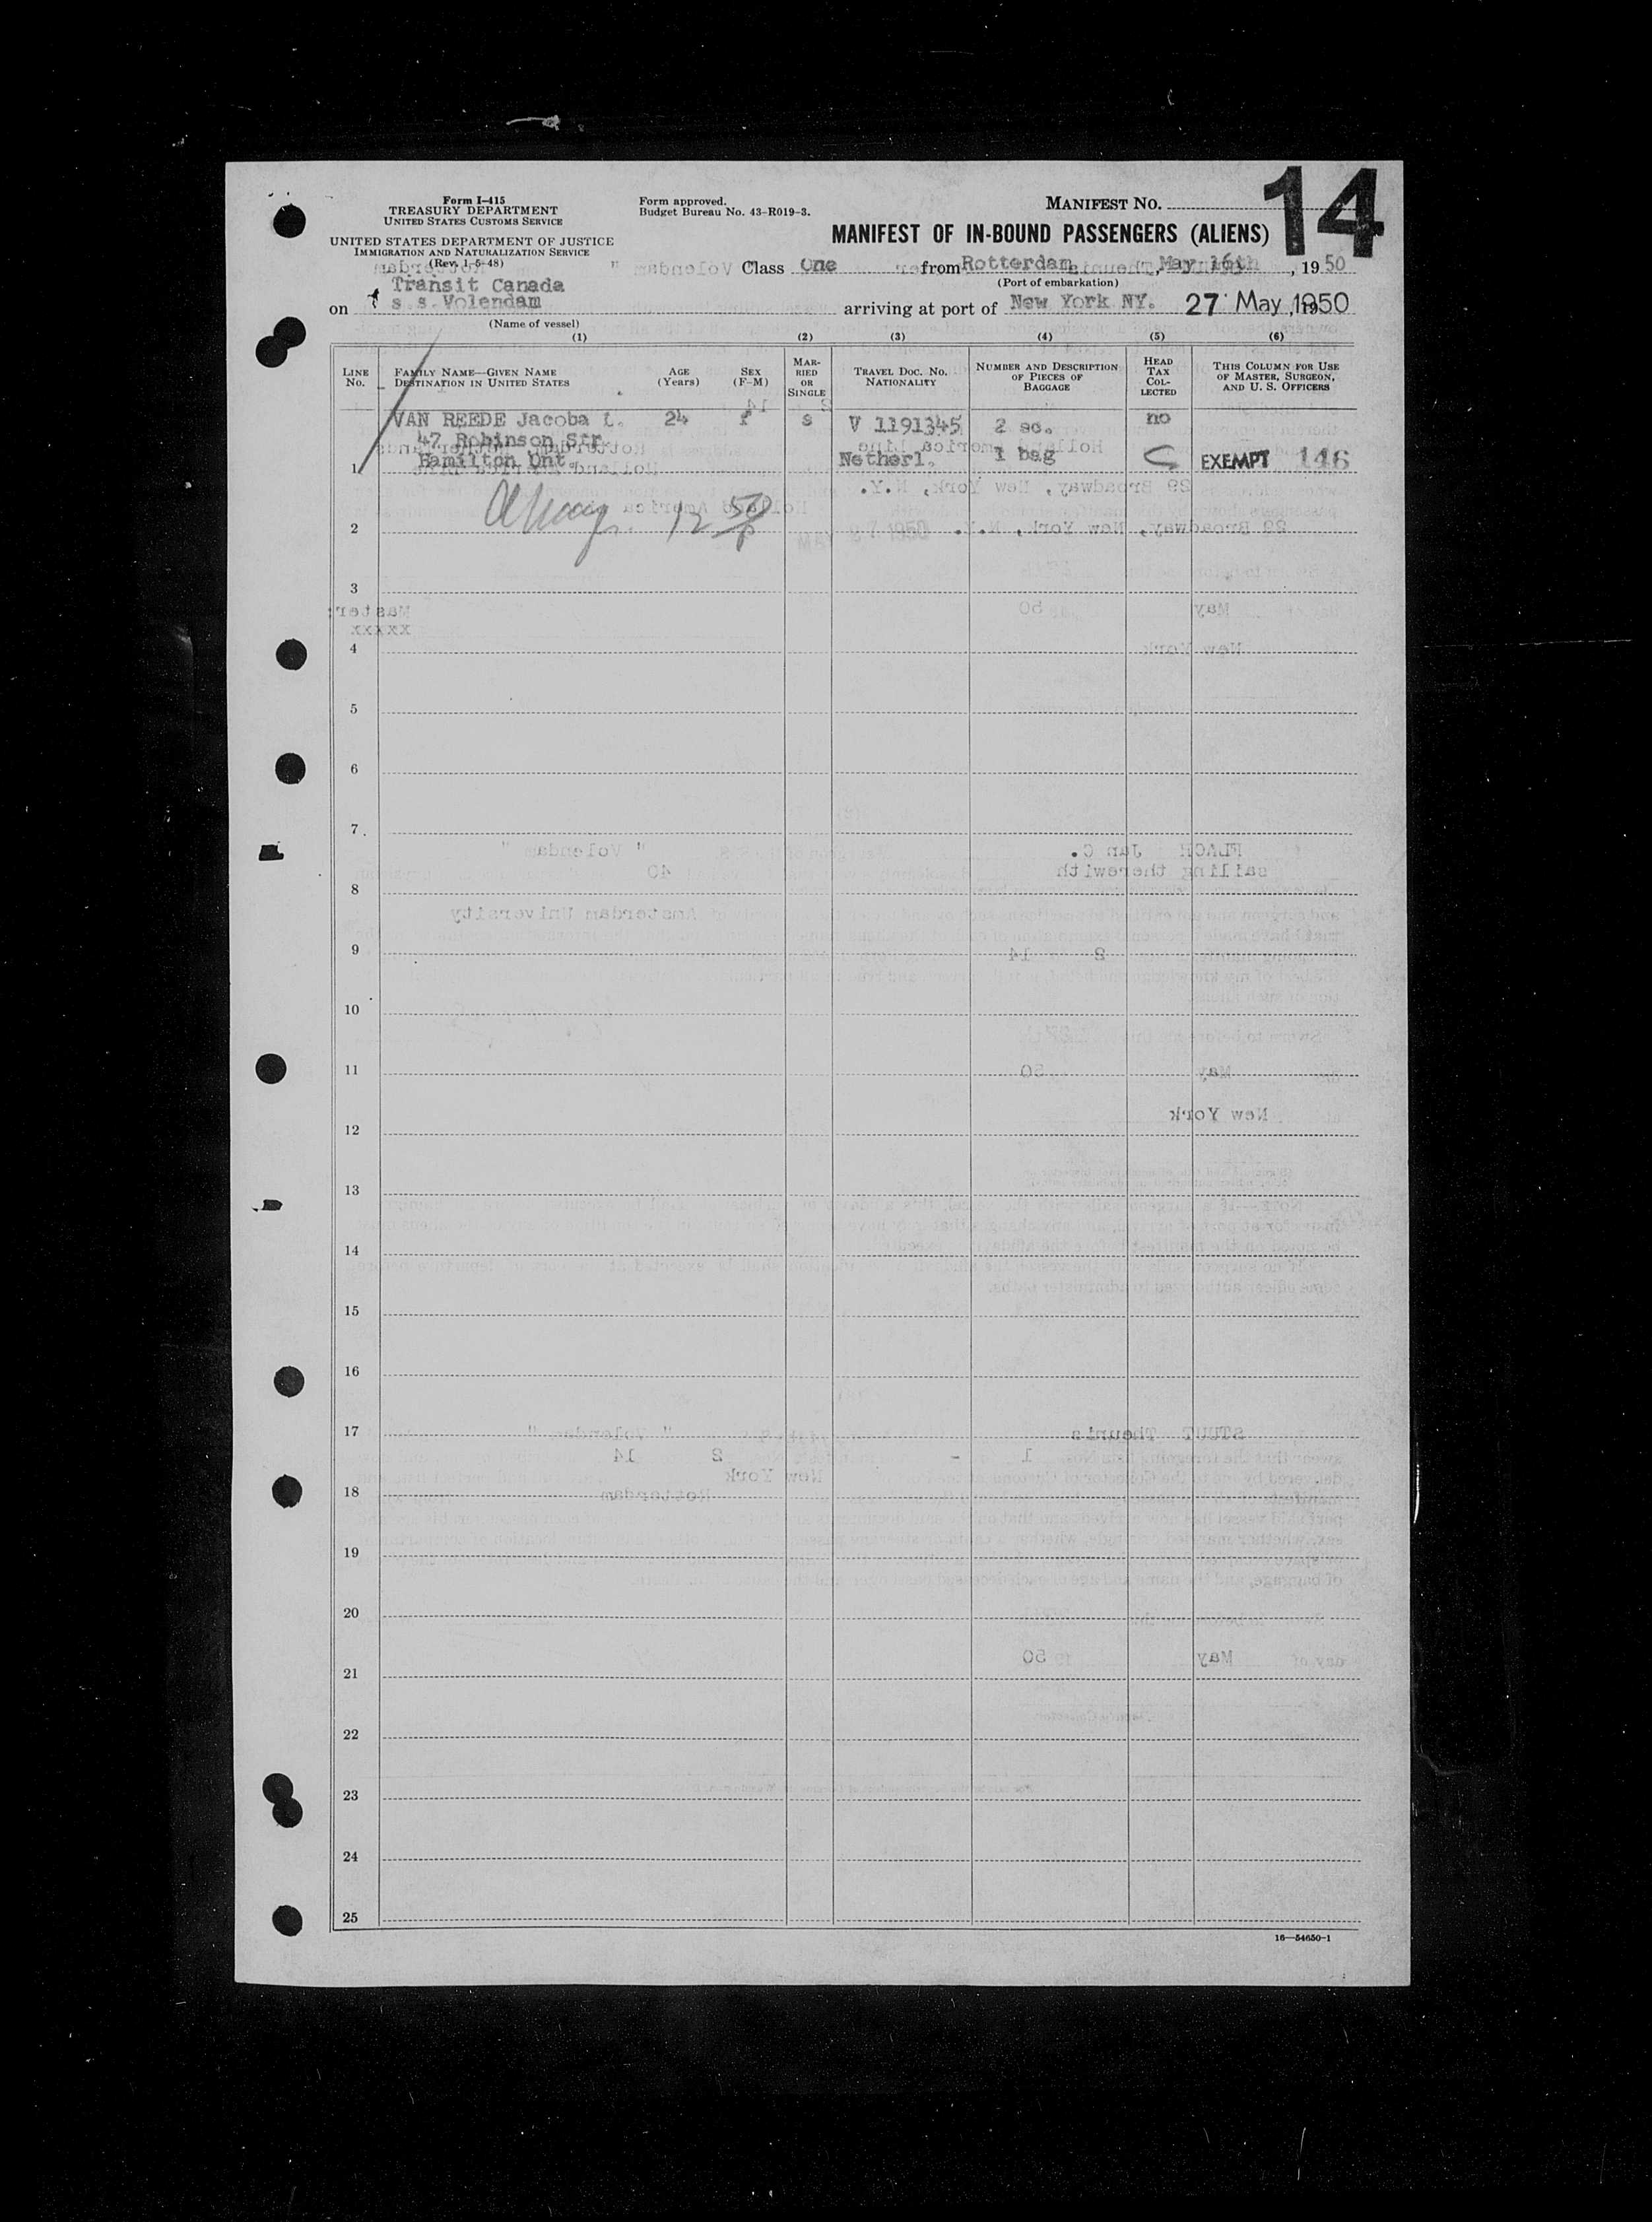 Form I-415
TREASURY DEPARTMENT
UNITED STATES CUSTOMS SERVICE
UNITED STATES DEPARTMENT OF JUSTICE
IMMIGRATION AND NATURALIZATION SERVICE
(Rev. 1-5-48)
Form approved.
Budget Bureau No. 43-R019-3.
MANIFEST NO. 14
MANIFEST OF IN-BOUND PASSENGERS (ALIENS)
Class One from Rotterdam, May 16th, 1950
(Port of embarkation)
Transit Canada
on s.s. Volendam arriving at port of New York NY. 27 May, 1950
(Name of vessel)
(1) (2) (3) (4) (5) (6)
LINE No. FAMILY NAME—GIVEN NAME DESTINATION IN UNITED STATES AGE (Years) SEX (F-M) MARRIED OR SINGLE TRAVEL DOC. NO. NATIONALITY NUMBER AND DESCRIPTION OF PIECES OF BAGGAGE HEAD TAX COLLECTED THIS COLUMN FOR USE OF MASTER, SURGEON, AND U. S. OFFICERS
VAN REEDE Jacoba 24 f s V 1191345 2 sc. no
47 Robinson Str
1 Hamilton Ont. Netherl. 1 bag EXEMPT 146
2
3
4
5
6
7
8
9
10
11
12
13
14
15
16
17
18
19
20
21
22
23
24
25
16—54650-1